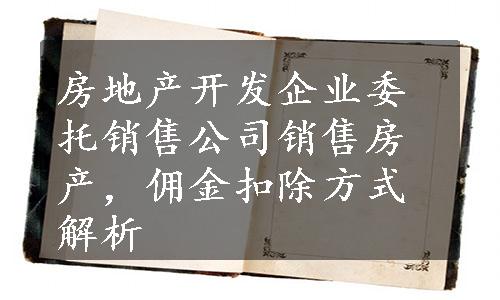 房地产开发企业委
托销售公司销售房
产，佣金扣除方式
解析